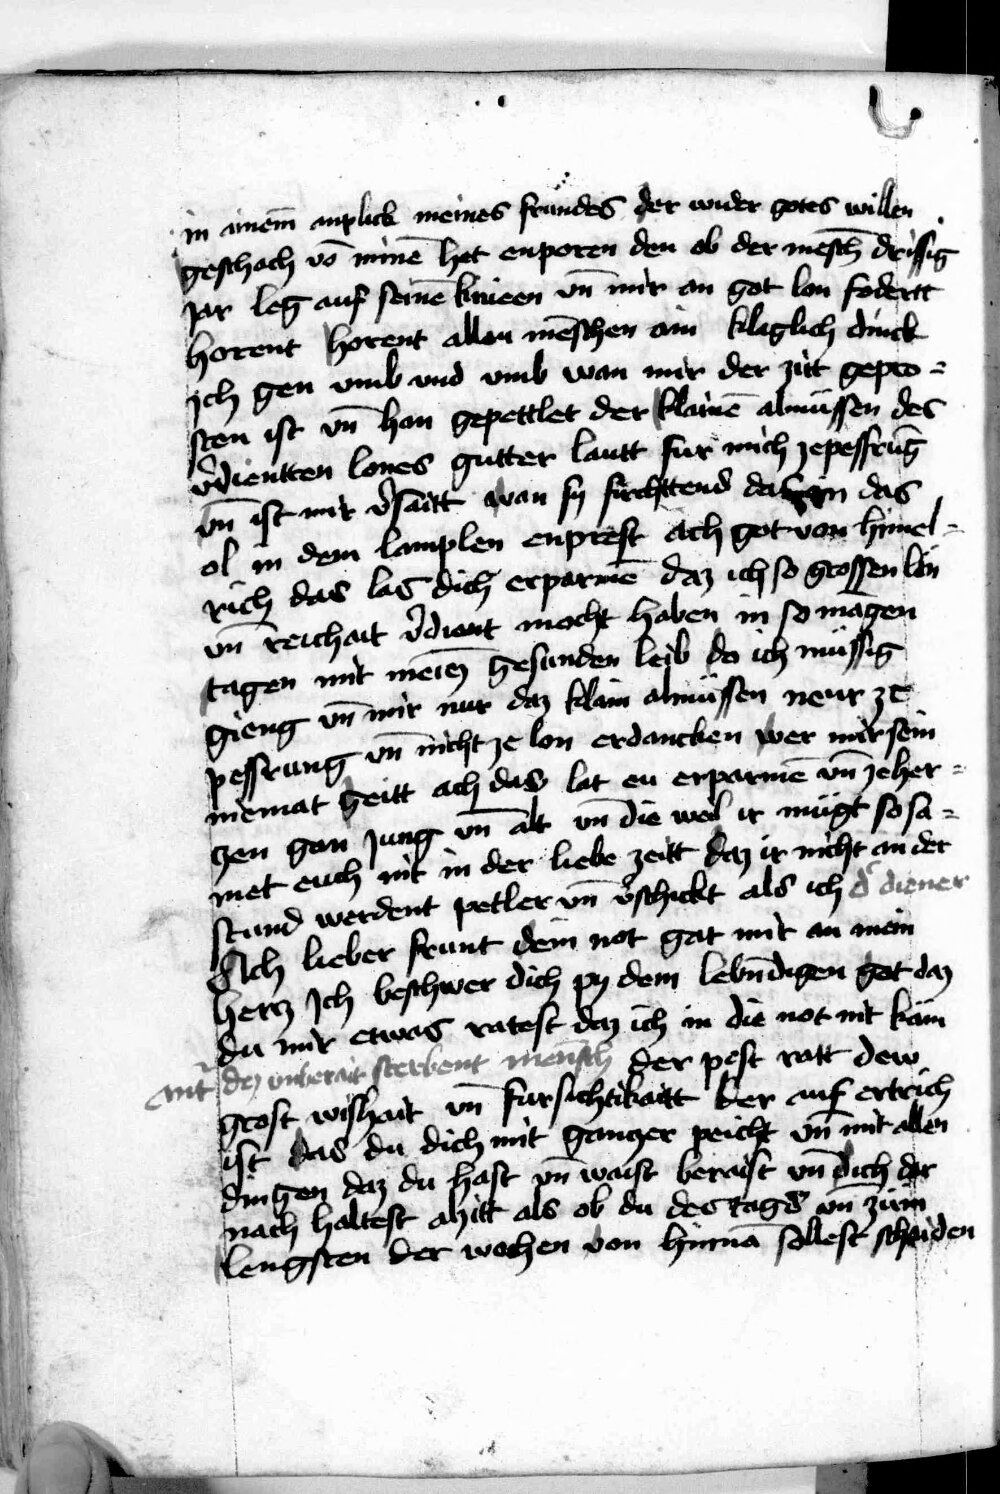 in ainem anplick meines frundes der wider gotes willen
geschach vō minē het enporen den ob der mesch̄ drissig
jar leg auf seinē knieen vn̄ mir an got lon fodertt
horent horent allen mēschen ain klaglich dinck
jch gen vmb vnd vmb wan mir der zitt gepro=
sten ist vn̄ han gepettlet der klainē almüssen des
v̄dientten lones gutter lautt fur mich ze pessrūg
vn̄ ist mir v̄saitt wan sy firchttend das in das
ol in dem lamplen enprest ach got von himel=
rich das las dich erparmē daz ich so grossen lon
vn̄ reichait v̄dient mocht haben in so māgen
tagen mit meinē gesunden leib do ich müssig
gieng vn̄ mir nur daz klain almüssen neur ze
pessrung vn̄ nicht ze lon erdancken wer mir sein
niemat geitt ach das lat eu erparmē vn̄ ze her=
tzen gan jung vn̄ alt vn̄ die weil ir mügt so sa=
met euch nit in der liebe zeitt daz ir nicht an der
stund werdent petler vn̄ v̄schickt als ich d̄ diener
Ach lieber frunt dein not gat mir an mein
hertz jch beschwer dich py dem lebn̄digen got daz
du mir etwas ratest daz ich in die not nit kām
der vnberait sterbent mensch der pest ratt dew
grost wishait vn̄ fursichtikaitt der auf ertrich
ist das du dich mit gantzer peicht vn̄ mit allen
dingen daz du hast vn̄ waist beraist vn̄ dich dar
nach haltest alzitt als ob du des tags vn̄ zum
lengsten der wochen von hinnā sollest schaiden